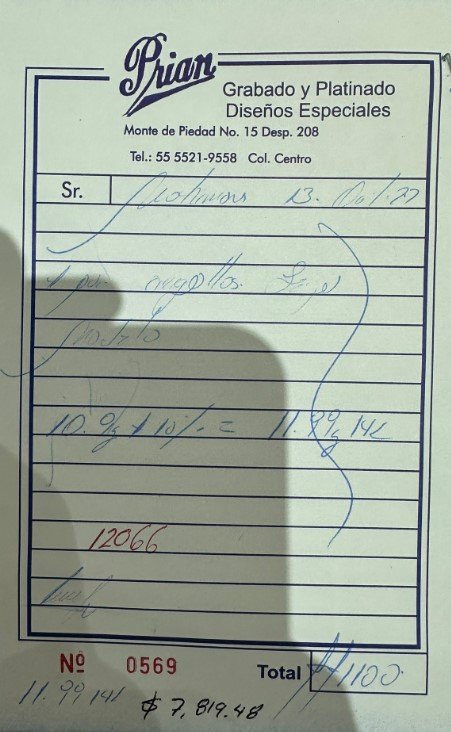 Prian
Grabado y Platinado
Diseños Especiales
Monte de Piedad No. 15 Desp. 208
Tel.: 55 5521-9558 Col. Centro
Sr. 13.
1 par
Modelo
10.9g + 10% = 11.99g 14k
12066
Nº 0569 Total 1100
11.99 14k $ 7,819.48